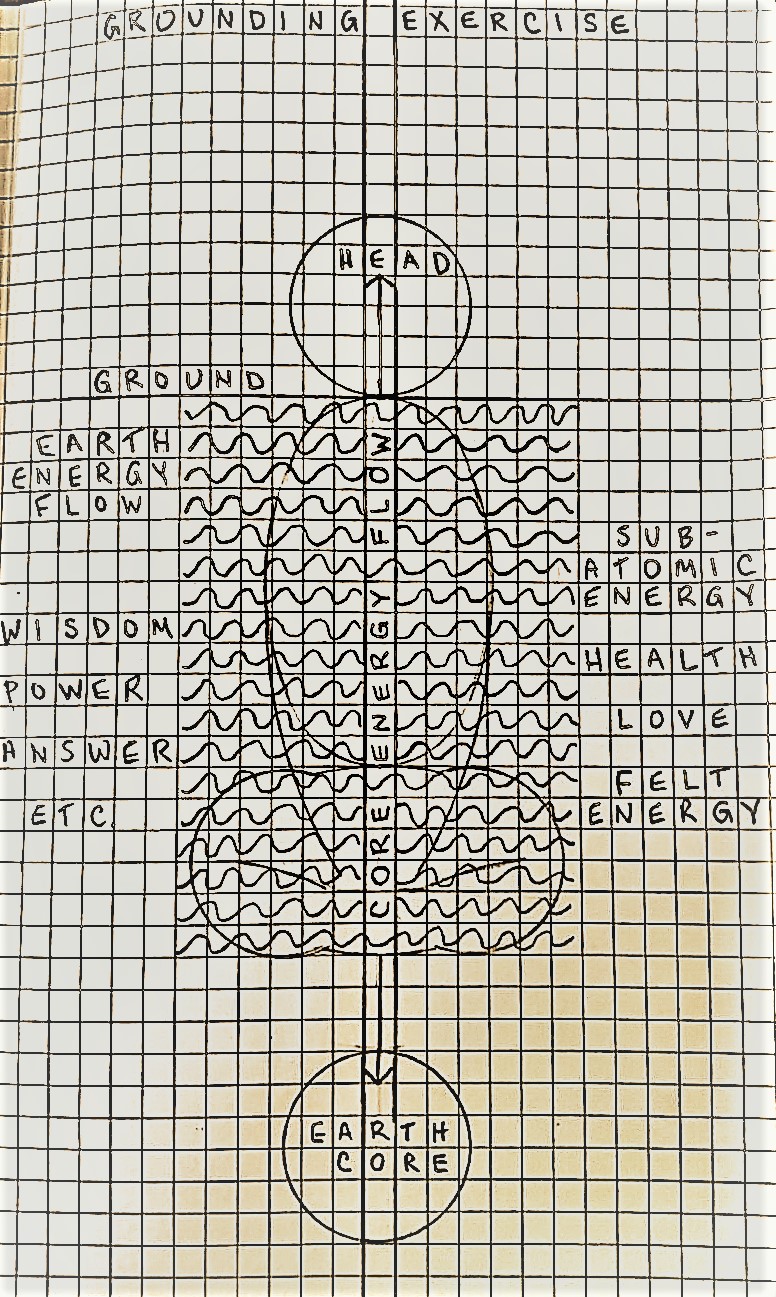 GROUNDING EXERCISE
HEAD
GROUND
EARTH
ENERGY
FLOW
WISDOM
POWER
ANSWER
ETC.
CORE ENERGY FLOW
SUB-
ATOMIC
ENERGY
HEALTH
LOVE
FELT
ENERGY
EARTH
CORE